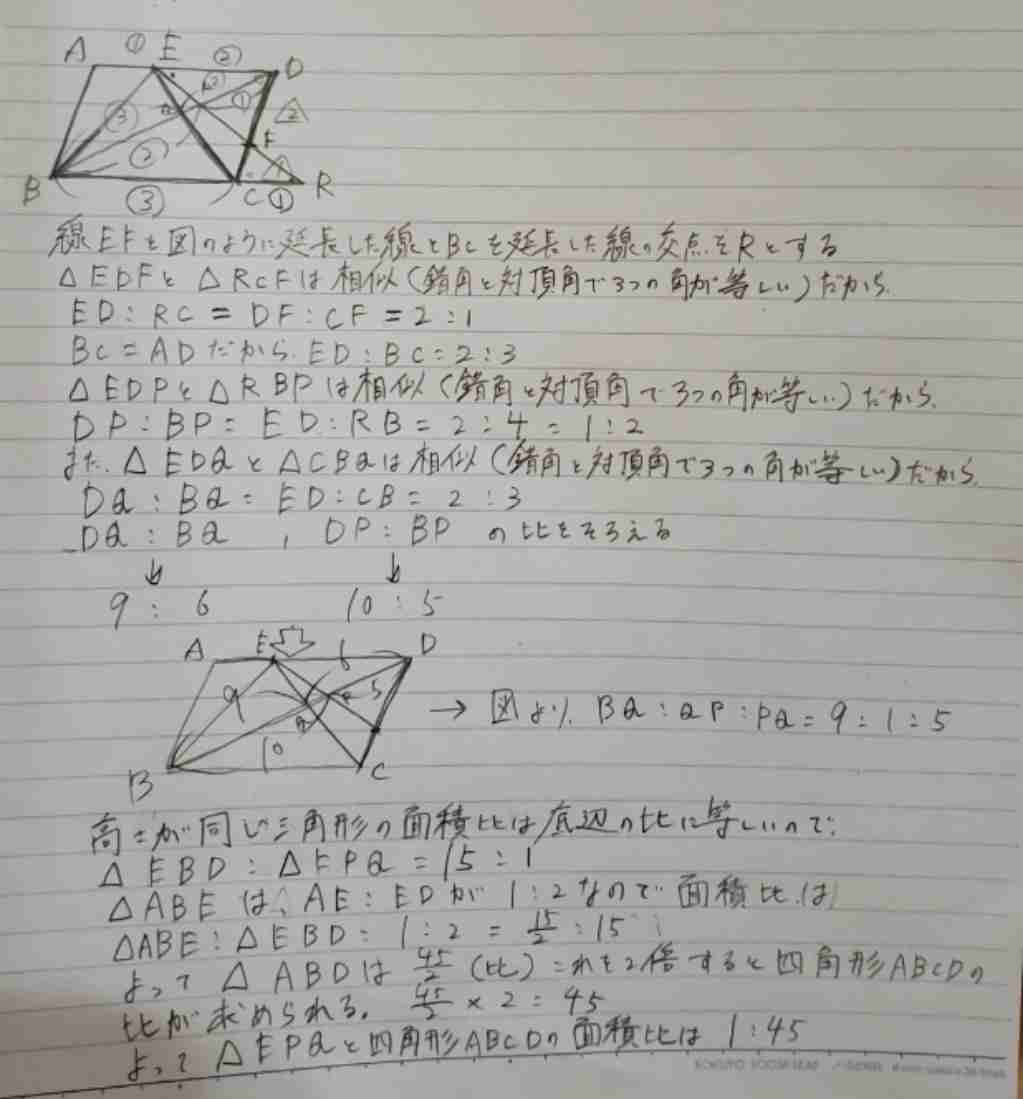 A ① E ② D
② ①
③ Q F 2
②
B ③ C ① R
線EFを図のように延長した線とBCを延長した線の交点をRとする
△EDFと△RCFは相似(錯角と対頂角で3つの角が等しい)だから、
ED:RC=DF:CF=2:1
BC=ADだから、ED:BC=2:3
△EDPと△RBPは相似(錯角と対頂角で3つの角が等しい)だから、
DP:BP=ED:RB=2:4=1:2
また、△EDQと△CBQは相似(錯角と対頂角で3つの角が等しい)だから、
DQ:BQ=ED:CB=2:3
DQ:BQ , DP:BPの比をそろえる
↓ ↓
9:6 10:5
A E 6 D
9 Q 5
→ 図より、BQ:QP:PQ=9:1:5
10
B C
高さが同じ三角形の面積比は底辺の比に等しいので、
△EBD:△EPQ=15:1
△ABEは、AE:EDが1:2なので面積比は
△ABE:△EBD=1:2=15/2:15
よって△ABDは45/2(比)これを2倍すると四角形ABCDの
比が求められる。45/2×2=45
よって△EPQと四角形ABCDの面積比は1:45